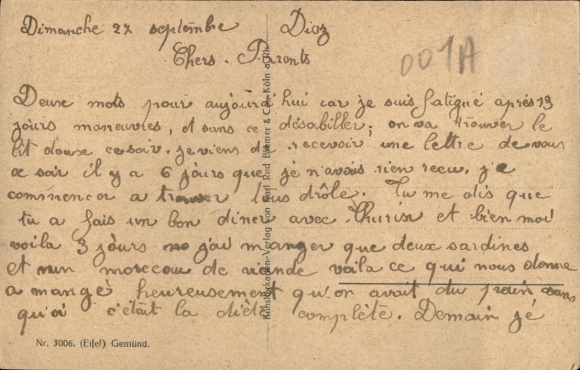 Dimanche 27 septembre Dioz
001A
Chers Parents
Deux mots pour aujourd'hui car je suis fatigué après 13
jours maneuvres, et sans ce désabiller; on va trouver le
lit doux ce soir. je viens de recevoir une lettre de vous
ce soir il y a 6 jours que je n'avais rien recu. je
commencer a trouver drôle. Tu me dis que
tu a fais un bon diner avec Thurin et bien moi
voila 3 jours j'ai manger que deux sardines
et un morceau de viande voila ce qui nous donne
a mangé heureusement qu'on avait du pain sans
quoi c'était la diète complète. Demain je
Nr. 3006. (Eifel) Gemünd.
Kunstkarten-Verlag von Karl Rud. & Co. Köln a. Rh.